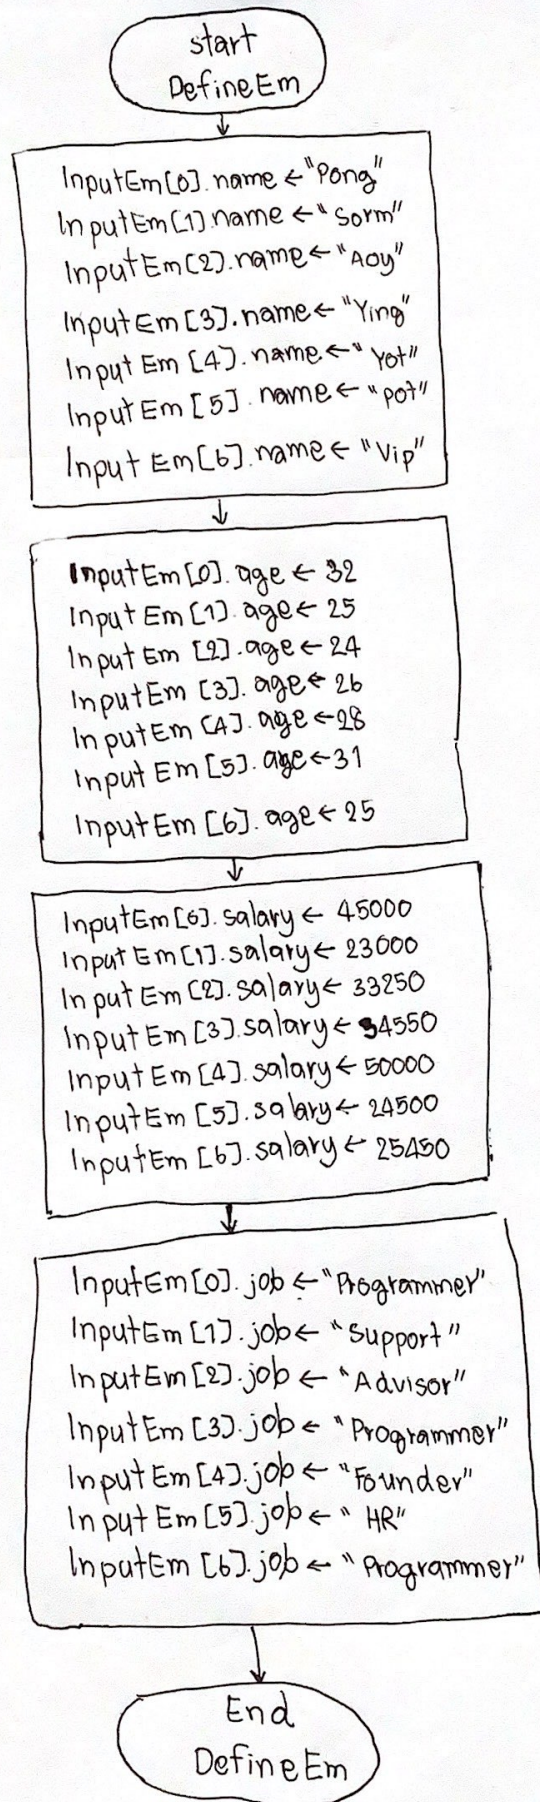 start
DefineEm
InputEm[0].name ← "Pong"
InputEm[1].name ← "Sorm"
InputEm[2].name ← "Aoy"
InputEm[3].name ← "Ying"
InputEm[4].name ← "Yot"
InputEm[5].name ← "pot"
InputEm[6].name ← "Vip"
InputEm[0].age ← 32
InputEm[1].age ← 25
InputEm[2].age ← 24
InputEm[3].age ← 26
InputEm[4].age ← 28
InputEm[5].age ← 31
InputEm[6].age ← 25
InputEm[0].salary ← 45000
InputEm[1].salary ← 23000
InputEm[2].salary ← 33250
InputEm[3].salary ← 34550
InputEm[4].salary ← 50000
InputEm[5].salary ← 24500
InputEm[6].salary ← 25450
InputEm[0].job ← "Programmer"
InputEm[1].job ← "Support"
InputEm[2].job ← "Advisor"
InputEm[3].job ← "Programmer"
InputEm[4].job ← "Founder"
InputEm[5].job ← "HR"
InputEm[6].job ← "Programmer"
End
DefineEm